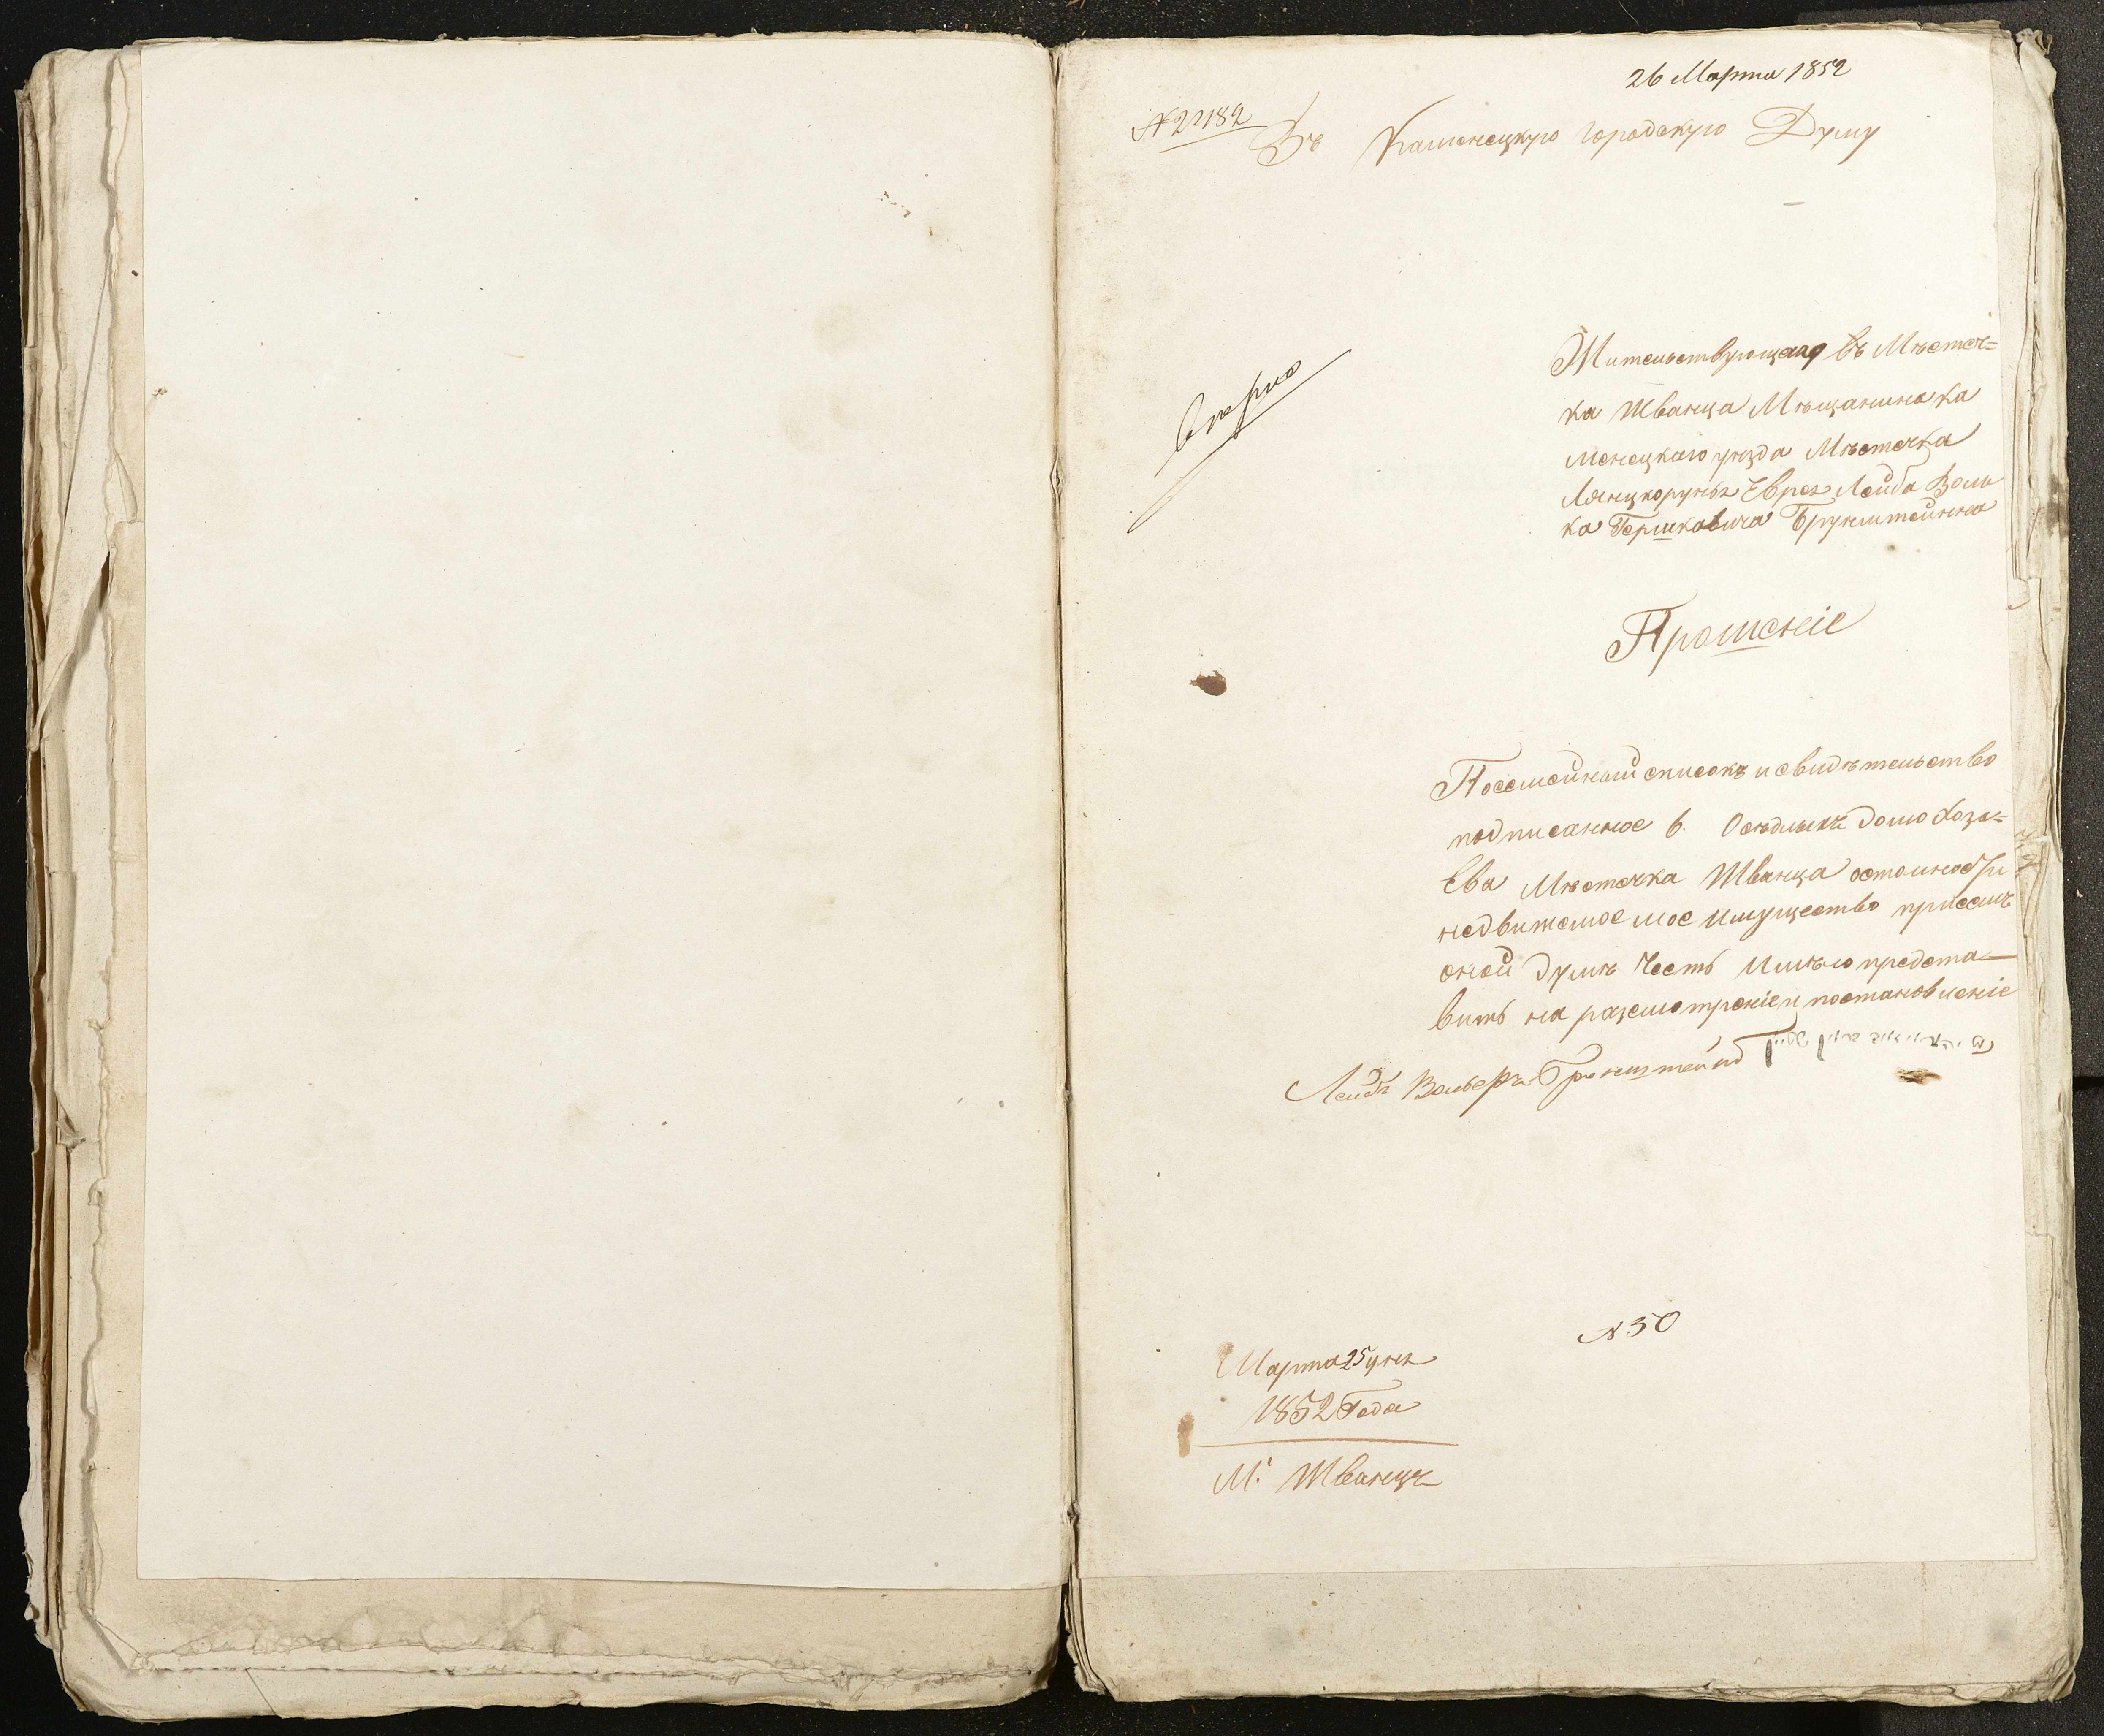 26 Марта 1852
№ 22182
Въ Каменецкую городскую Думу
Жительствующаго въ Местеч=
ка Жванца Мѣщанина Ка
менецкаго уѣзда Мѣстечка
Лянцкоруня Еврея Лейба Воль
ка Гершковича Брунштейна
Прошеніе
Посемейный списокъ и свидѣтельство
подписанное 6. Осѣдлыхъ домохозя=
ева Мѣстечка Жванца
недвижемое мое имущество присемъ
оной думѣ Честь имѣю предста
вить на разсмотреніе и постановленіе
Лейба Вольберъ Бронштейнъ
№ 50
Марта 25 дня
1852 Года
М. Жванецъ